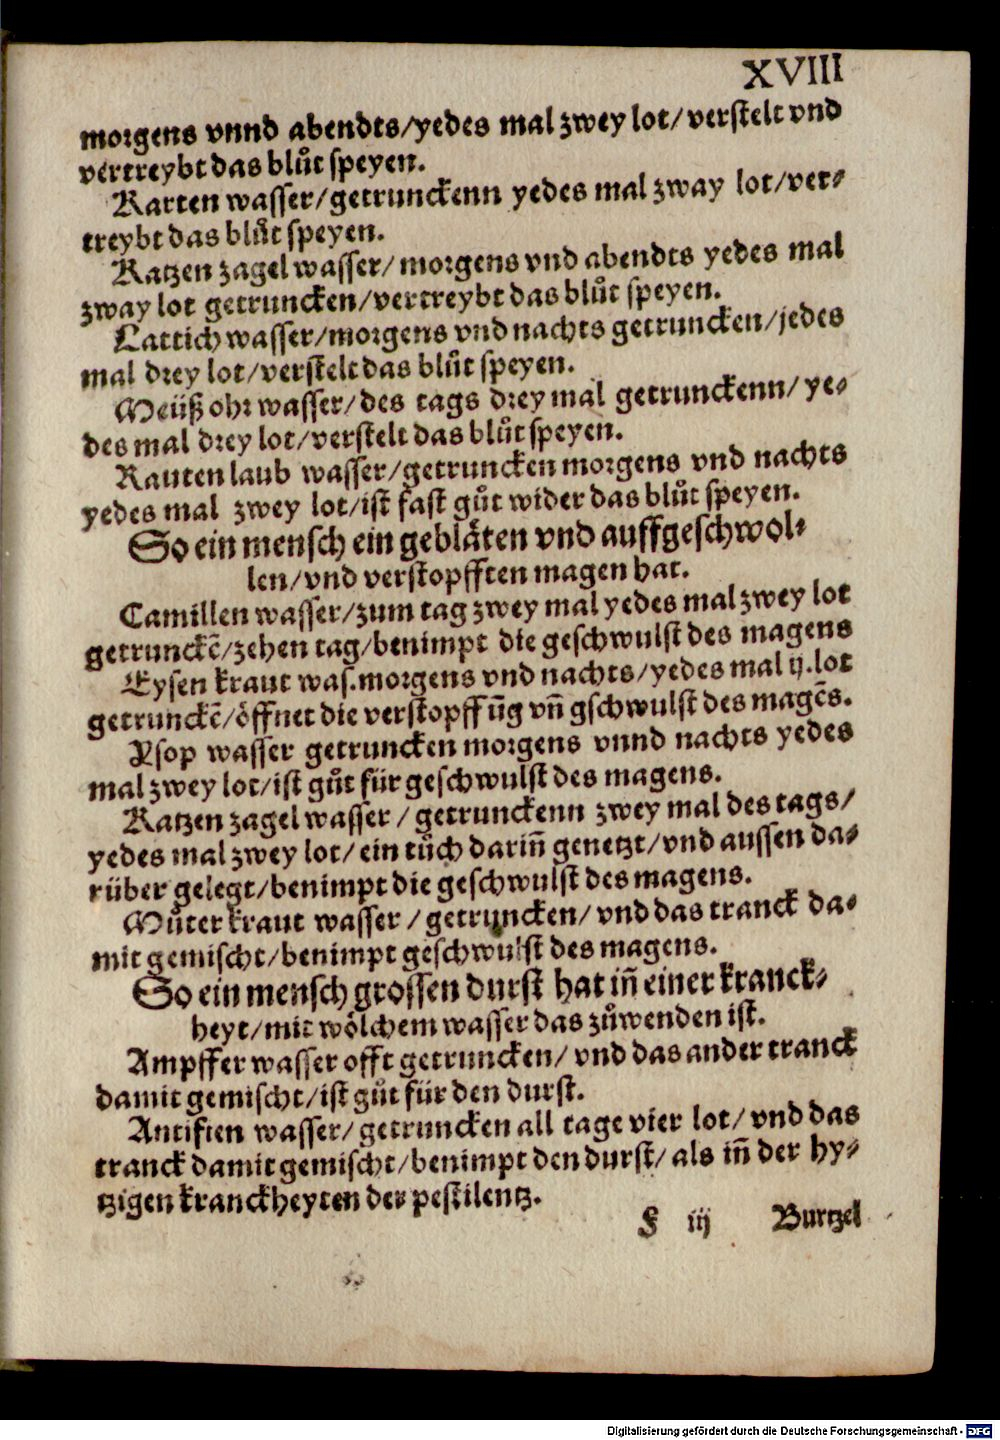 XVIII
morgens vnnd abendts/yedes mal zwey lot/verstelt vnd
vertreybt das blůt speyen.
Karten wasser/getrunckenn yedes mal zway lot/ver-
treybt das blůt speyen.
Katzen zagel wasser/morgens vnd abendts yedes mal
zway lot getruncken/vertreybt das blůt speyen.
Lattich wasser/morgens vnd nachts getruncken/jedes
mal drey lot/verstelt das blůt speyen.
Meüß ohr wasser/des tags drey mal getrunckenn/ye-
des mal drey lot/verstelt das blůt speyen.
Rauten laub wasser/getruncken morgens vnd nachts
yedes mal zwey lot/ist fast gůt wider das blůt speyen.
So ein mensch ein gebläten vnd auffgeschwol-
len/vnd verstopfften magen hat.
Camillen wasser/zum tag zwey mal yedes mal zwey lot
getrunckē/zehen tag/benimpt die geschwulst des magens
Eysen kraut was.morgens vnd nachts/yedes mal ij.lot
getrunckē/öffnet die verstopffūg vn̄ gschwulst des magēs.
Ysop wasser getruncken morgens vnnd nachts yedes
mal zwey lot/ist gůt für geschwulst des magens.
Katzen zagel wasser/getrunckenn zwey mal des tags/
yedes mal zwey lot/ein tůch darin̄ genetzt/vnd aussen da-
rüber gelegt/benimpt die geschwulst des magens.
Můter kraut wasser/getruncken/vnd das tranck da-
mit gemischt/benimpt geschwulst des magens.
So ein mensch grossen durst hat in̄ einer kranck-
heyt/mit wölchem wasser das zůwenden ist.
Ampffer wasser offt getruncken/vnd das ander tranck
damit gemischt/ist gůt für den durst.
Antifien wasser/getruncken all tage vier lot/vnd das
tranck damit gemischt/benimpt den durst/als in̄ der hy-
tzigen kranckheyten der pestilentz.
F iij Burtzel
Digitalisierung gefördert durch die Deutsche Forschungsgemeinschaft - DFG